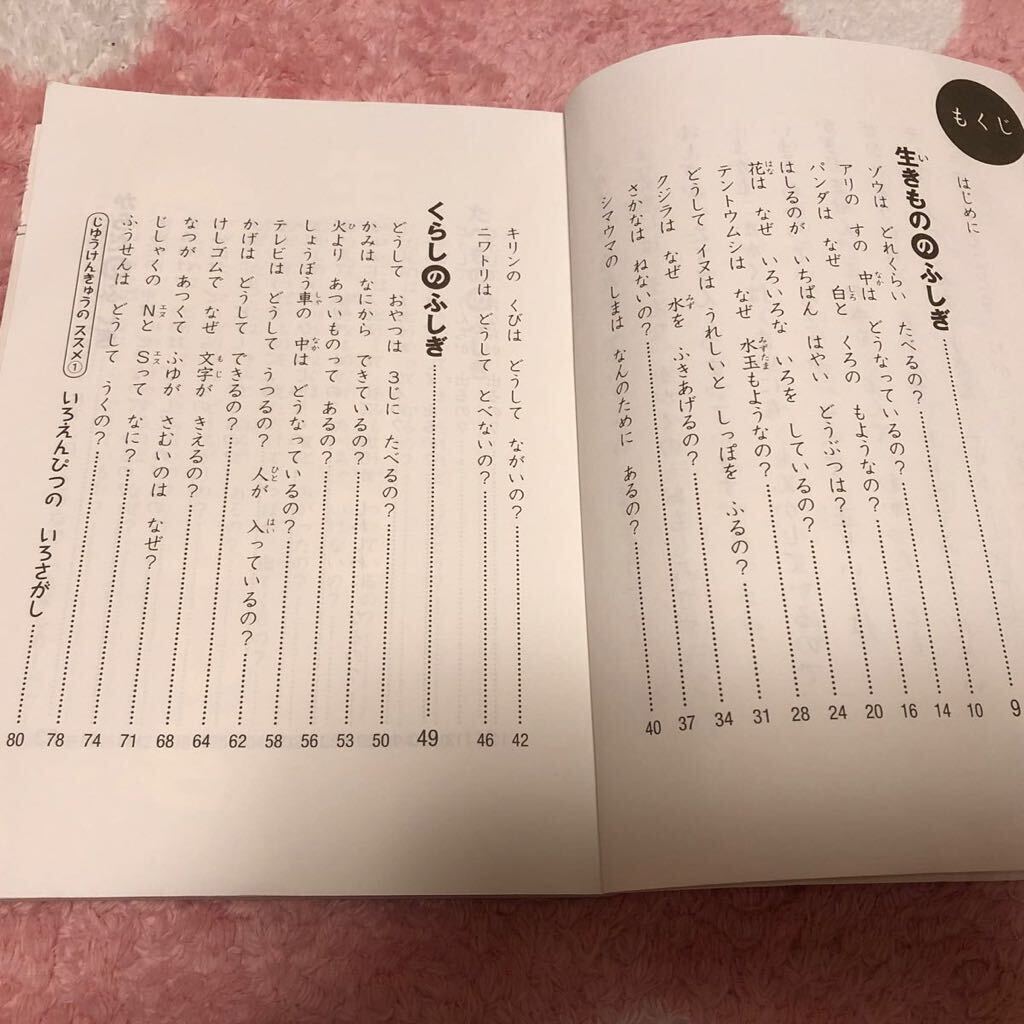 もくじ
はじめに
い
生きもののふしぎ……9
ゾウは どれくらい たべるの?……10
なか
アリの すの 中は どうなっているの?……14
しろ
パンダは なぜ 白と くろの もようなの?……16
はしるのが いちばん はやい どうぶつは?……20
はな
花は なぜ いろいろな いろを しているの?……24
みずたま
テントウムシは なぜ 水玉もようなの?……28
どうして イヌは うれしいと しっぽを ふるの?……31
みず
クジラは なぜ 水を ふきあげるの?……34
さかなは ねないの?……37
シマウマの しまは なんのために あるの?……40
キリンの くびは どうして ながいの?……42
ニワトリは どうして とべないの?……46
くらしのふしぎ……49
どうして おやつは 3じに たべるの?……50
かみは なにから できているの?……53
ひ
火より あついものって あるの?……56
しゃ なか
しょうぼう車の 中は どうなっているの?……58
ひと はい
テレビは どうして うつるの? 人が 入っているの?……62
かげは どうして できるの?……64
もじ
けしゴムで なぜ 文字が きえるの?……68
なつが あつくて ふゆが さむいのは なぜ?……71
エヌ エス
じしゃくの Nと Sって なに?……74
ふうせんは どうして うくの?……78
じゆうけんきゅうの ススメ① いろえんぴつの いろさがし……80